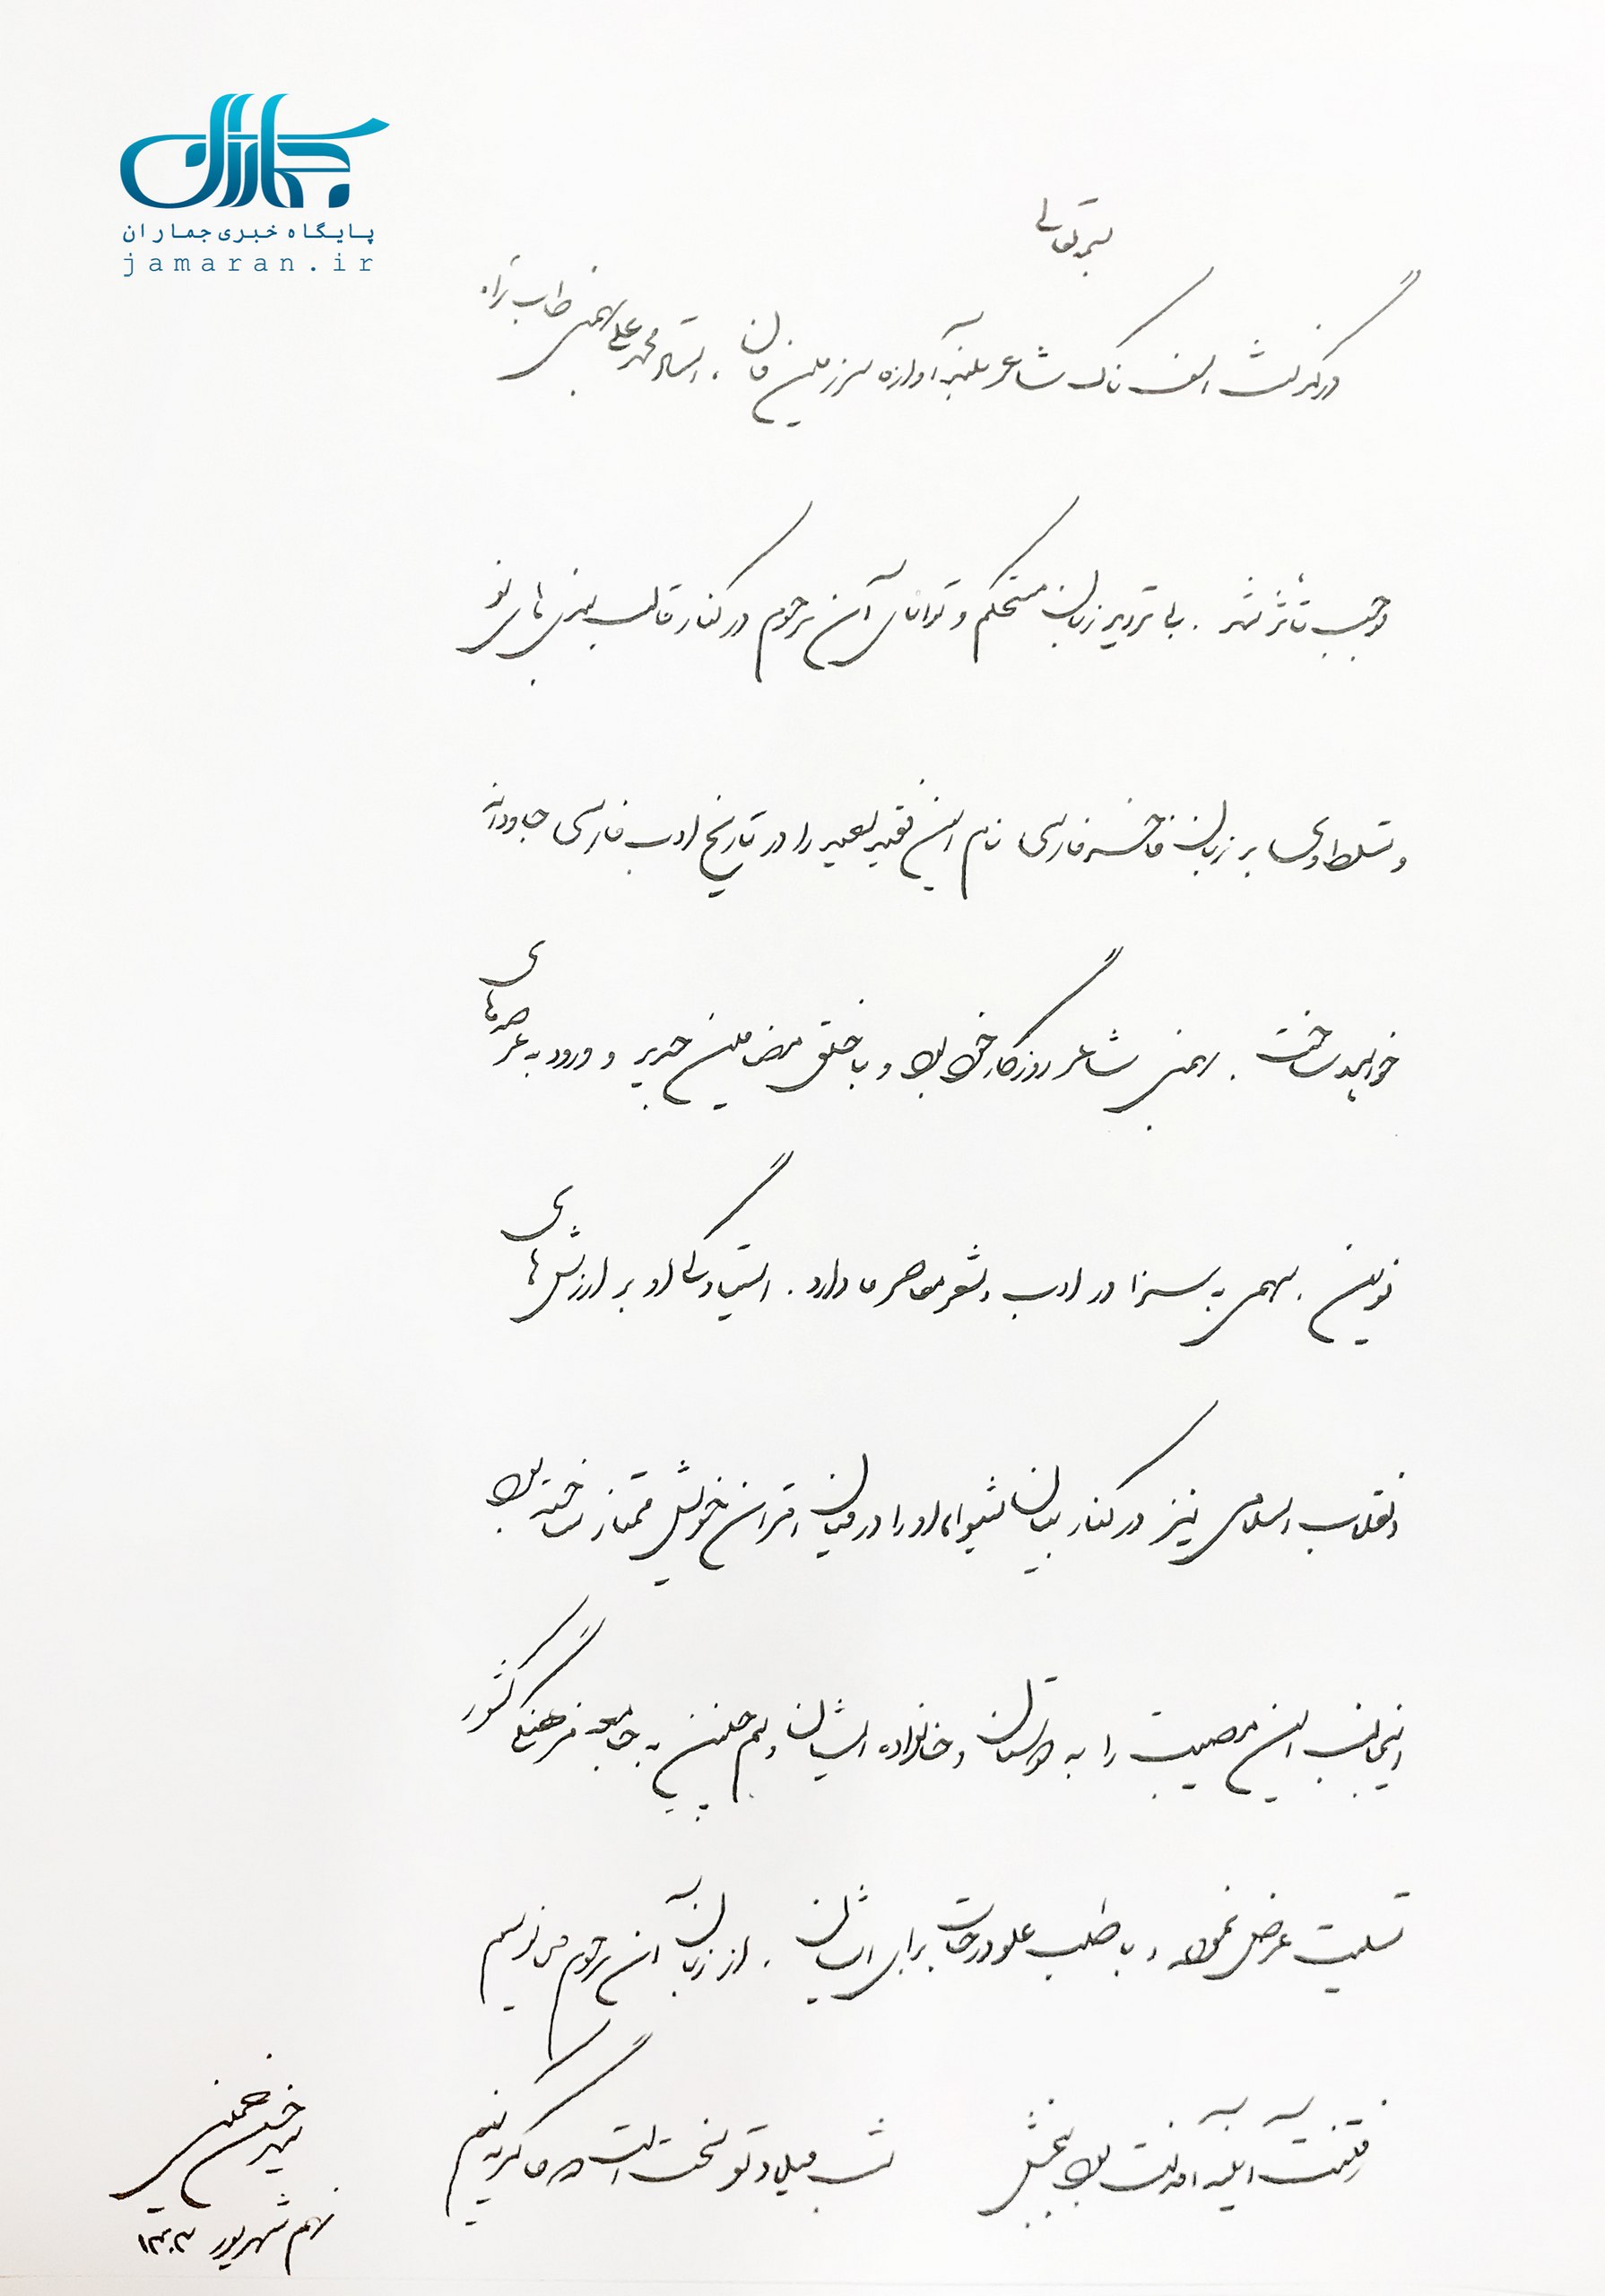 جماران
پایگاه خبری جماران
jamaran.ir
بسمه تعالی
درگذشت اسف ناک شاعر بلند آوازه سرزمین مان، استاد محمد علی بهمنی طاب ثراه
موجب تأثر شد. بی تردید زبان مستحکم و توانای آن مرحوم در کنار قالب بندی های نو
و تسلط او بر زبان فاخر فارسی نام این فقید سعید را در تاریخ ادب فارسی جاودانه
خواهد ساخت. بهمنی شاعر روزگار خود بود و با خلق مضامین جدید و ورود به عرصه های
نوین، سهمی به سزا در ادب و شعر معاصر ما دارد. ایستادگی او بر ارزش های
انقلاب اسلامی نیز در کنار بیان شیوا، او را در میان اقران خویش ممتاز ساخته بود
اینجانب این مصیبت را به دوستان و خانواده ایشان و هم چنین به جامعه فرهنگی کشور
تسلیت عرض نموده و با طلب علو درجات برای ایشان، از زبان آن مرحوم می نویسم
رفتنت آینه آمدنت بود ببخش
شب میلاد تو تلخ است که ما گریه کنیم
سید حسن خمینی
نهم شهریور ۱۴۰۳